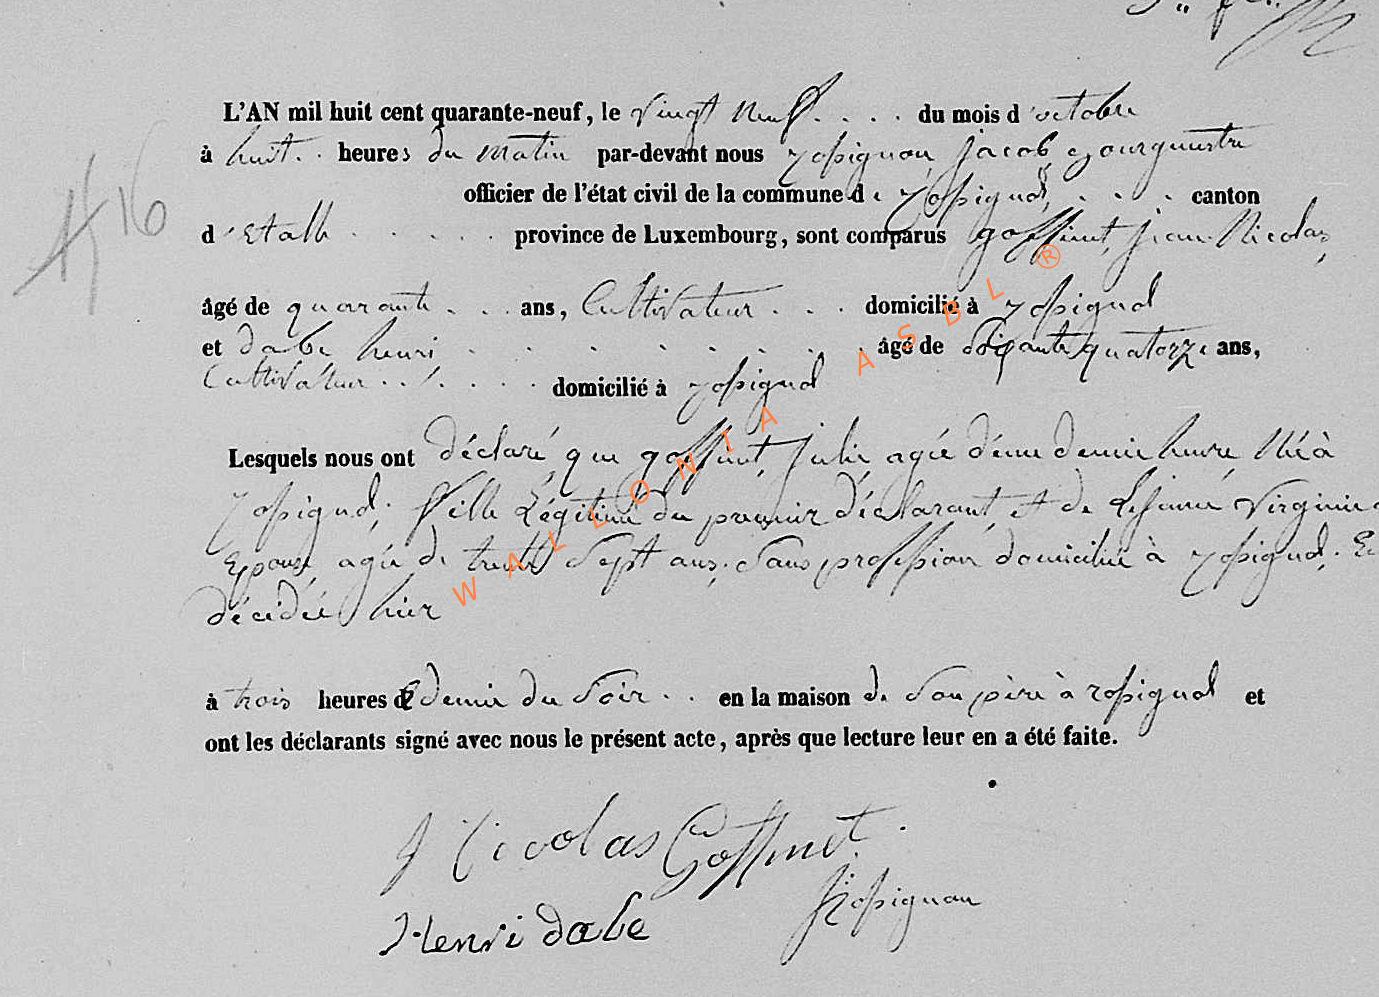 L'AN mil huit cent quarante-neuf, le vingt neuf .... du mois d'octobre
16
à huit .. heures du matin par-devant nous rossignon, jacob, Bourguestre
officier de l'état civil de la commune de rossignol, ... canton
d'Etalle ..... province de Luxembourg, sont comparus goffinet, jean-Nicolas,
âgé de quarante ... ans, Cultivateur ... domicilié à rossignol
et dabe henri ........ âgé de Soixante quatorze ans,
Cultivateur ...... domicilié à rossignol
Lesquels nous ont déclaré, que goffinet, Julie, agée d'une demie heure, Née à
rossignol, fille Légitime du premier déclarant, et de Lejeune Virginie
Epouse, agée de trente Sept ans, Sans profession domiciliée à rossignol, Est
décédée hier
à trois heures & demie du Soir .. en la maison de Son père à rossignol et
ont les déclarants signé avec nous le présent acte, après que lecture leur en a été faite.
J Nicolas Goffinet.
JRossignon
Henri dabe
WALLONIA ASBL ®